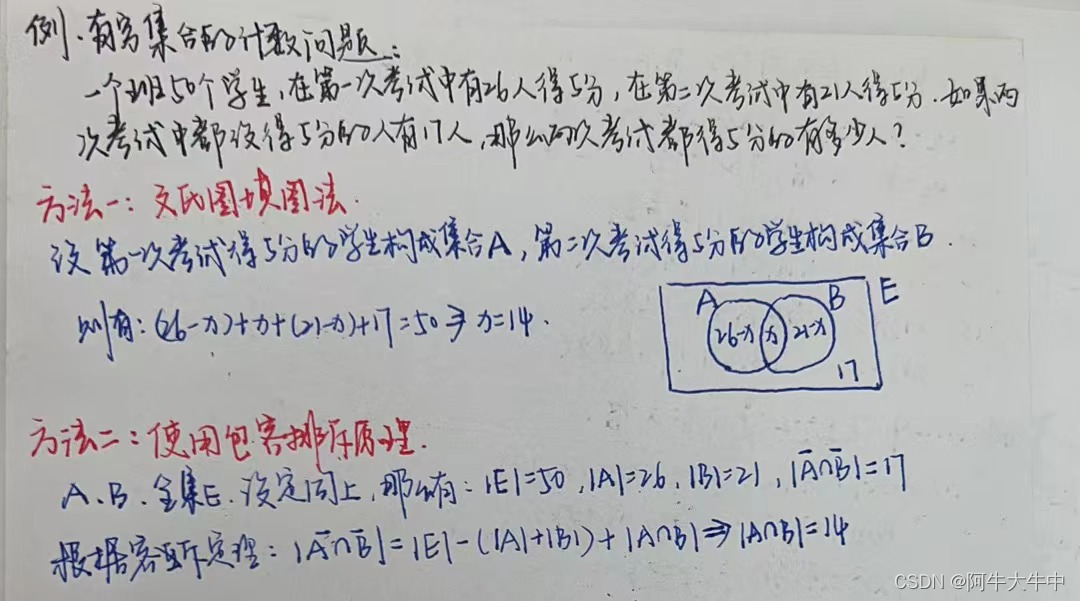 例、有穷集合的计数问题:
一个班50个学生,在第一次考试中有26人得5分,在第二次考试中有21人得5分.如果两
次考试中都没得5分的人有17人,那么两次考试都得5分的有多少人?
方法一:文氏图填图法.
设第一次考试得5分的学生构成集合A,第二次考试得5分的学生构成集合B.
则有:(26-x)+x+(21-x)+17=50⇒x=14.
A B E
26-x x 21-x
17
方法二:使用包容排斥原理.
A.B.全集E.设定同上,那么有:|E|=50,|A|=26,|B|=21,|A̅∩B̅|=17
根据容斥定理:|A̅∩B̅|=|E|-(|A|+|B|)+|A∩B|⇒|A∩B|=14
CSDN @阿牛大牛中